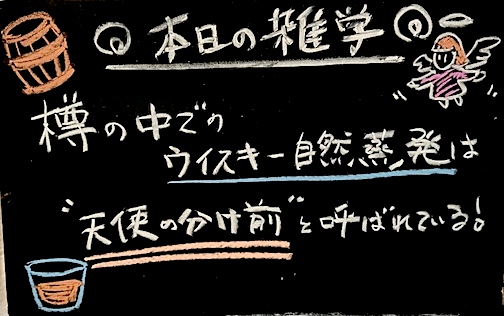 本日の雑学
樽の中での
ウイスキー自然蒸発は
"天使の分け前"と呼ばれている!